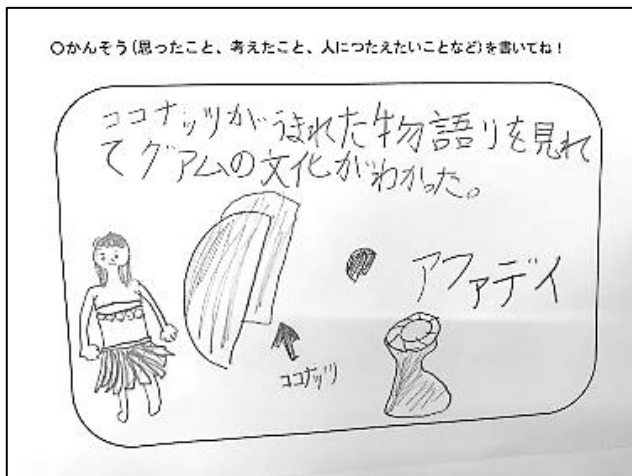 ○かんそう（思ったこと、考えたこと、人につたえたいことなど）を書いてね！
ココナッツがうまれた物語りを見れ
てグアムの文化がわかった。
アファデイ
ココナッツ